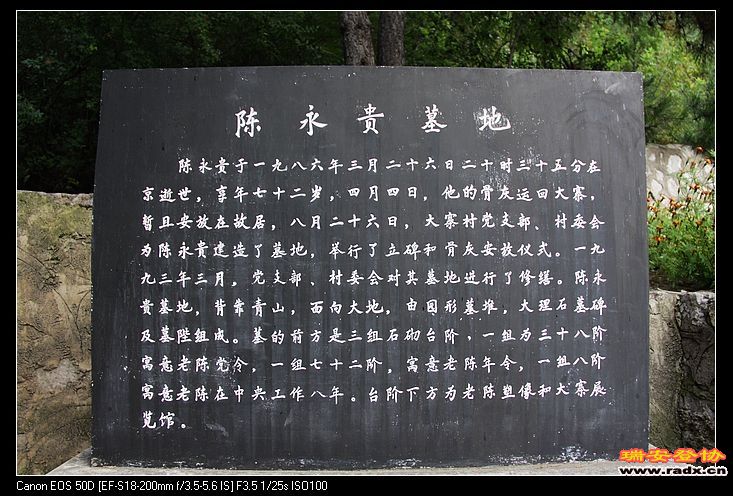 陈永贵墓地
陈永贵于一九八六年三月二十六日二十时三十五分在
京逝世，享年七十二岁，四月四日，他的骨灰运回大寨，
暂且安放在故居，八月二十六日，大寨村党支部、村委会
为陈永贵建造了墓地，举行了立碑和骨灰安放仪式。一九
九三年三月，党支部、村委会对其墓地进行了修缮。陈永
贵墓地，背靠青山，面向大地，由圆形墓堆，大理石墓碑
及墓陛组成。墓的前方是三组石砌台阶，一组为三十八阶
寓意老陈党令，一组七十二阶，寓意老陈年令，一组八阶
寓意老陈在中央工作八年。台阶下方为老陈塑像和大寨展
览馆。
瑞安登协
www.radx.cn
Canon EOS 50D [EF-S18-200mm f/3.5-5.6 IS] F3.5 1/25s ISO100